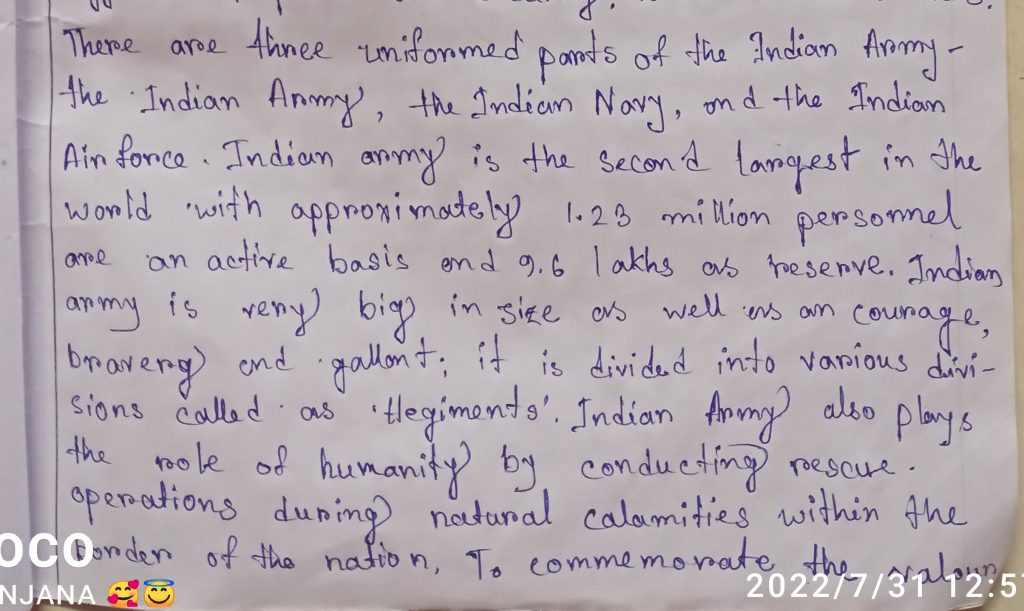 There are three uniformed parts of the Indian Army-
the Indian Army, the Indian Navy, and the Indian
Air force. Indian army is the second largest in the
world with approximately 1.23 million personnel
are an active basis and 9.6 lakhs as reserve. Indian
army is very big in size as well as an courage,
bravery and gallant; it is divided into various divi-
sions called as 'Regiments'. Indian Army also plays
the role of humanity by conducting rescue.
operations during natural calamities within the
border of the nation. To commemorate the valour
OCO
NJANA 🥰😇
2022/7/31 12:5